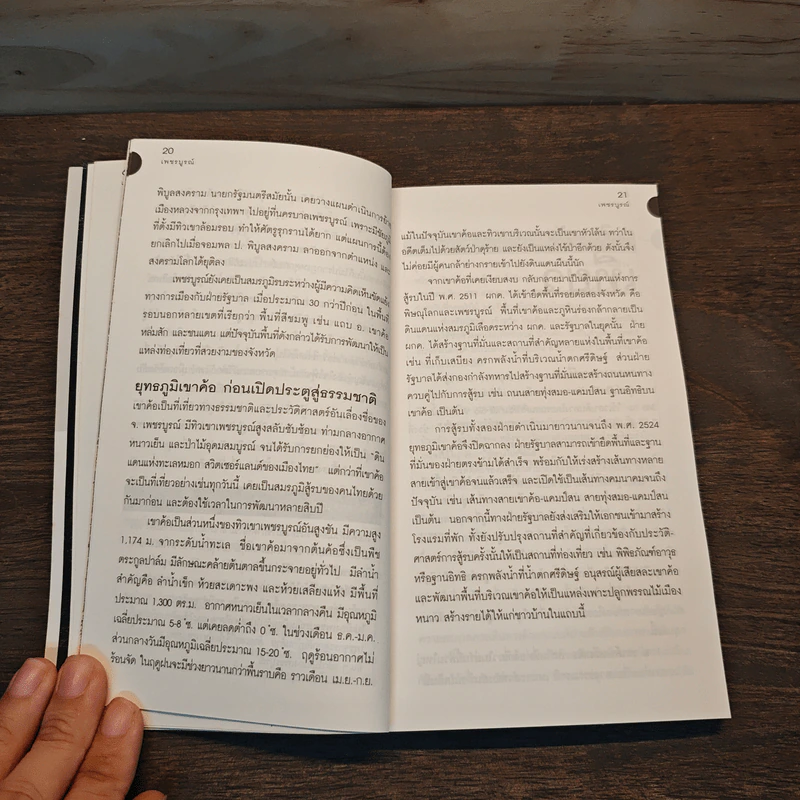 20
เพชรบูรณ์
พิบูลสงคราม นายกรัฐมนตรีสมัยนั้น เคยวางแผนดำเนินการย้าย
เมืองหลวงจากกรุงเทพฯ ไปอยู่ที่นครบาลเพชรบูรณ์ เพราะมีชัยภูมิ
ที่ตั้งมีทิวเขาล้อมรอบ ทำให้ศัตรูรุกรานได้ยาก แต่แผนการนี้ต้อง
ยกเลิกไปเมื่อจอมพล ป. พิบูลสงคราม ลาออกจากตำแหน่ง และ
สงครามโลกได้ยุติลง
เพชรบูรณ์ยังเคยเป็นสมรภูมิรบระหว่างผู้มีความคิดเห็นขัดแย้ง
ทางการเมืองกับฝ่ายรัฐบาล เมื่อประมาณ 30 กว่าปีก่อน ในพื้นที่
รอบนอกหลายเขตที่เรียกว่า พื้นที่สีชมพู เช่น แถบ อ. เขาค้อ
หล่มสัก และชนแดน แต่ปัจจุบันพื้นที่ดังกล่าวได้รับการพัฒนาให้เป็น
แหล่งท่องเที่ยวที่สวยงามของจังหวัด
ยุทธภูมิเขาค้อ ก่อนเปิดประตูสู่ธรรมชาติ
เขาค้อเป็นที่เที่ยวทางธรรมชาติและประวัติศาสตร์อันเลื่องชื่อของ
จ. เพชรบูรณ์ มีทิวเขาเพชรบูรณ์สูงสลับซับซ้อน ท่ามกลางอากาศ
หนาวเย็น และป่าไม้อุดมสมบูรณ์ จนได้รับการยกย่องให้เป็น “ดิน
แดนแห่งทะเลหมอก สวิตเซอร์แลนด์ของเมืองไทย” แต่กว่าที่เขาค้อ
จะเป็นที่เที่ยวอย่างเช่นทุกวันนี้ เคยเป็นสมรภูมิสู้รบของคนไทยด้วย
กันมาก่อน และต้องใช้เวลาในการพัฒนาหลายสิบปี
เขาค้อเป็นส่วนหนึ่งของทิวเขาเพชรบูรณ์อันสูงชัน มีความสูง
1,174 ม. จากระดับน้ำทะเล ชื่อเขาค้อมาจากต้นค้อซึ่งเป็นพืช
ตระกูลปาล์ม มีลักษณะคล้ายต้นตาลขึ้นกระจายอยู่ทั่วไป มีลำน้ำ
สำคัญคือ ลำน้ำเข็ก ห้วยสะเดาะพง และห้วยเสลียงแห้ง มีพื้นที่
ประมาณ 1,300 ตร.ม. อากาศหนาวเย็นในเวลากลางคืน มีอุณหภูมิ
เฉลี่ยประมาณ 5-8 ํซ. แต่เคยลดต่ำถึง 0 ํซ. ในช่วงเดือน ธ.ค.-ม.ค.
ส่วนกลางวันมีอุณหภูมิเฉลี่ยประมาณ 15-20 ํซ. ฤดูร้อนอากาศไม่
ร้อนจัด ในฤดูฝนจะมีช่วงยาวนานกว่าพื้นราบคือ ราวเดือน เม.ย.-ก.ย.
21
เพชรบูรณ์
แม้ในปัจจุบันเขาค้อและทิวเขาบริเวณนั้นจะเป็นเขาหัวโล้น ทว่าใน
อดีตเต็มไปด้วยสัตว์ป่าดุร้าย และยังเป็นแหล่งไข้ป่าอีกด้วย ดังนั้นจึง
ไม่ค่อยมีผู้คนกล้าย่างกรายเข้าไปยังดินแดนผืนนี้นัก
จากเขาค้อที่เคยเงียบสงบ กลับกลายมาเป็นดินแดนแห่งการ
สู้รบในปี พ.ศ. 2511 ผกค. ได้เข้ายึดพื้นที่รอยต่อสองจังหวัด คือ
พิษณุโลกและเพชรบูรณ์ พื้นที่เขาค้อและภูหินร่องกล้ากลายเป็น
ดินแดนแห่งสมรภูมิเลือดระหว่าง ผกค. และรัฐบาลในยุคนั้น ฝ่าย
ผกค. ได้สร้างฐานที่มั่นและสถานที่สำคัญหลายแห่งในพื้นที่เขาค้อ
เช่น ที่เก็บเสบียง ครกพลังน้ำที่บริเวณน้ำตกศรีดิษฐ์ ส่วนฝ่าย
รัฐบาลได้ส่งกองกำลังทหารไปสร้างฐานที่มั่นและสร้างถนนหนทาง
ควบคู่ไปกับการสู้รบ เช่น ถนนสายทุ่งสมอ-แคมป์สน ฐานอิทธิบน
เขาค้อ เป็นต้น
การสู้รบทั้งสองฝ่ายดำเนินมายาวนานจนถึง พ.ศ. 2524
ยุทธภูมิเขาค้อจึงปิดฉากลง ฝ่ายรัฐบาลสามารถเข้ายึดพื้นที่และฐาน
ที่มั่นของฝ่ายตรงข้ามได้สำเร็จ พร้อมกับให้เร่งสร้างเส้นทางหลาย
สายเข้าสู่เขาค้อจนแล้วเสร็จ และเปิดใช้เป็นเส้นทางคมนาคมจนถึง
ปัจจุบัน เช่น เส้นทางสายเขาค้อ-แคมป์สน สายทุ่งสมอ-แคมป์สน
เป็นต้น นอกจากนี้ทางฝ่ายรัฐบาลยังส่งเสริมให้เอกชนเข้ามาสร้าง
โรงแรมที่พัก ทั้งยังปรับปรุงสถานที่สำคัญที่เกี่ยวข้องกับประวัติ-
ศาสตร์การสู้รบครั้งนั้นให้เป็นสถานที่ท่องเที่ยว เช่น พิพิธภัณฑ์อาวุธ
หรือฐานอิทธิ ครกพลังน้ำที่น้ำตกศรีดิษฐ์ อนุสรณ์ผู้เสียสละเขาค้อ
และพัฒนาพื้นที่บริเวณเขาค้อให้เป็นแหล่งเพาะปลูกพรรณไม้เมือง
หนาว สร้างรายได้ให้แก่ชาวบ้านในแถบนี้